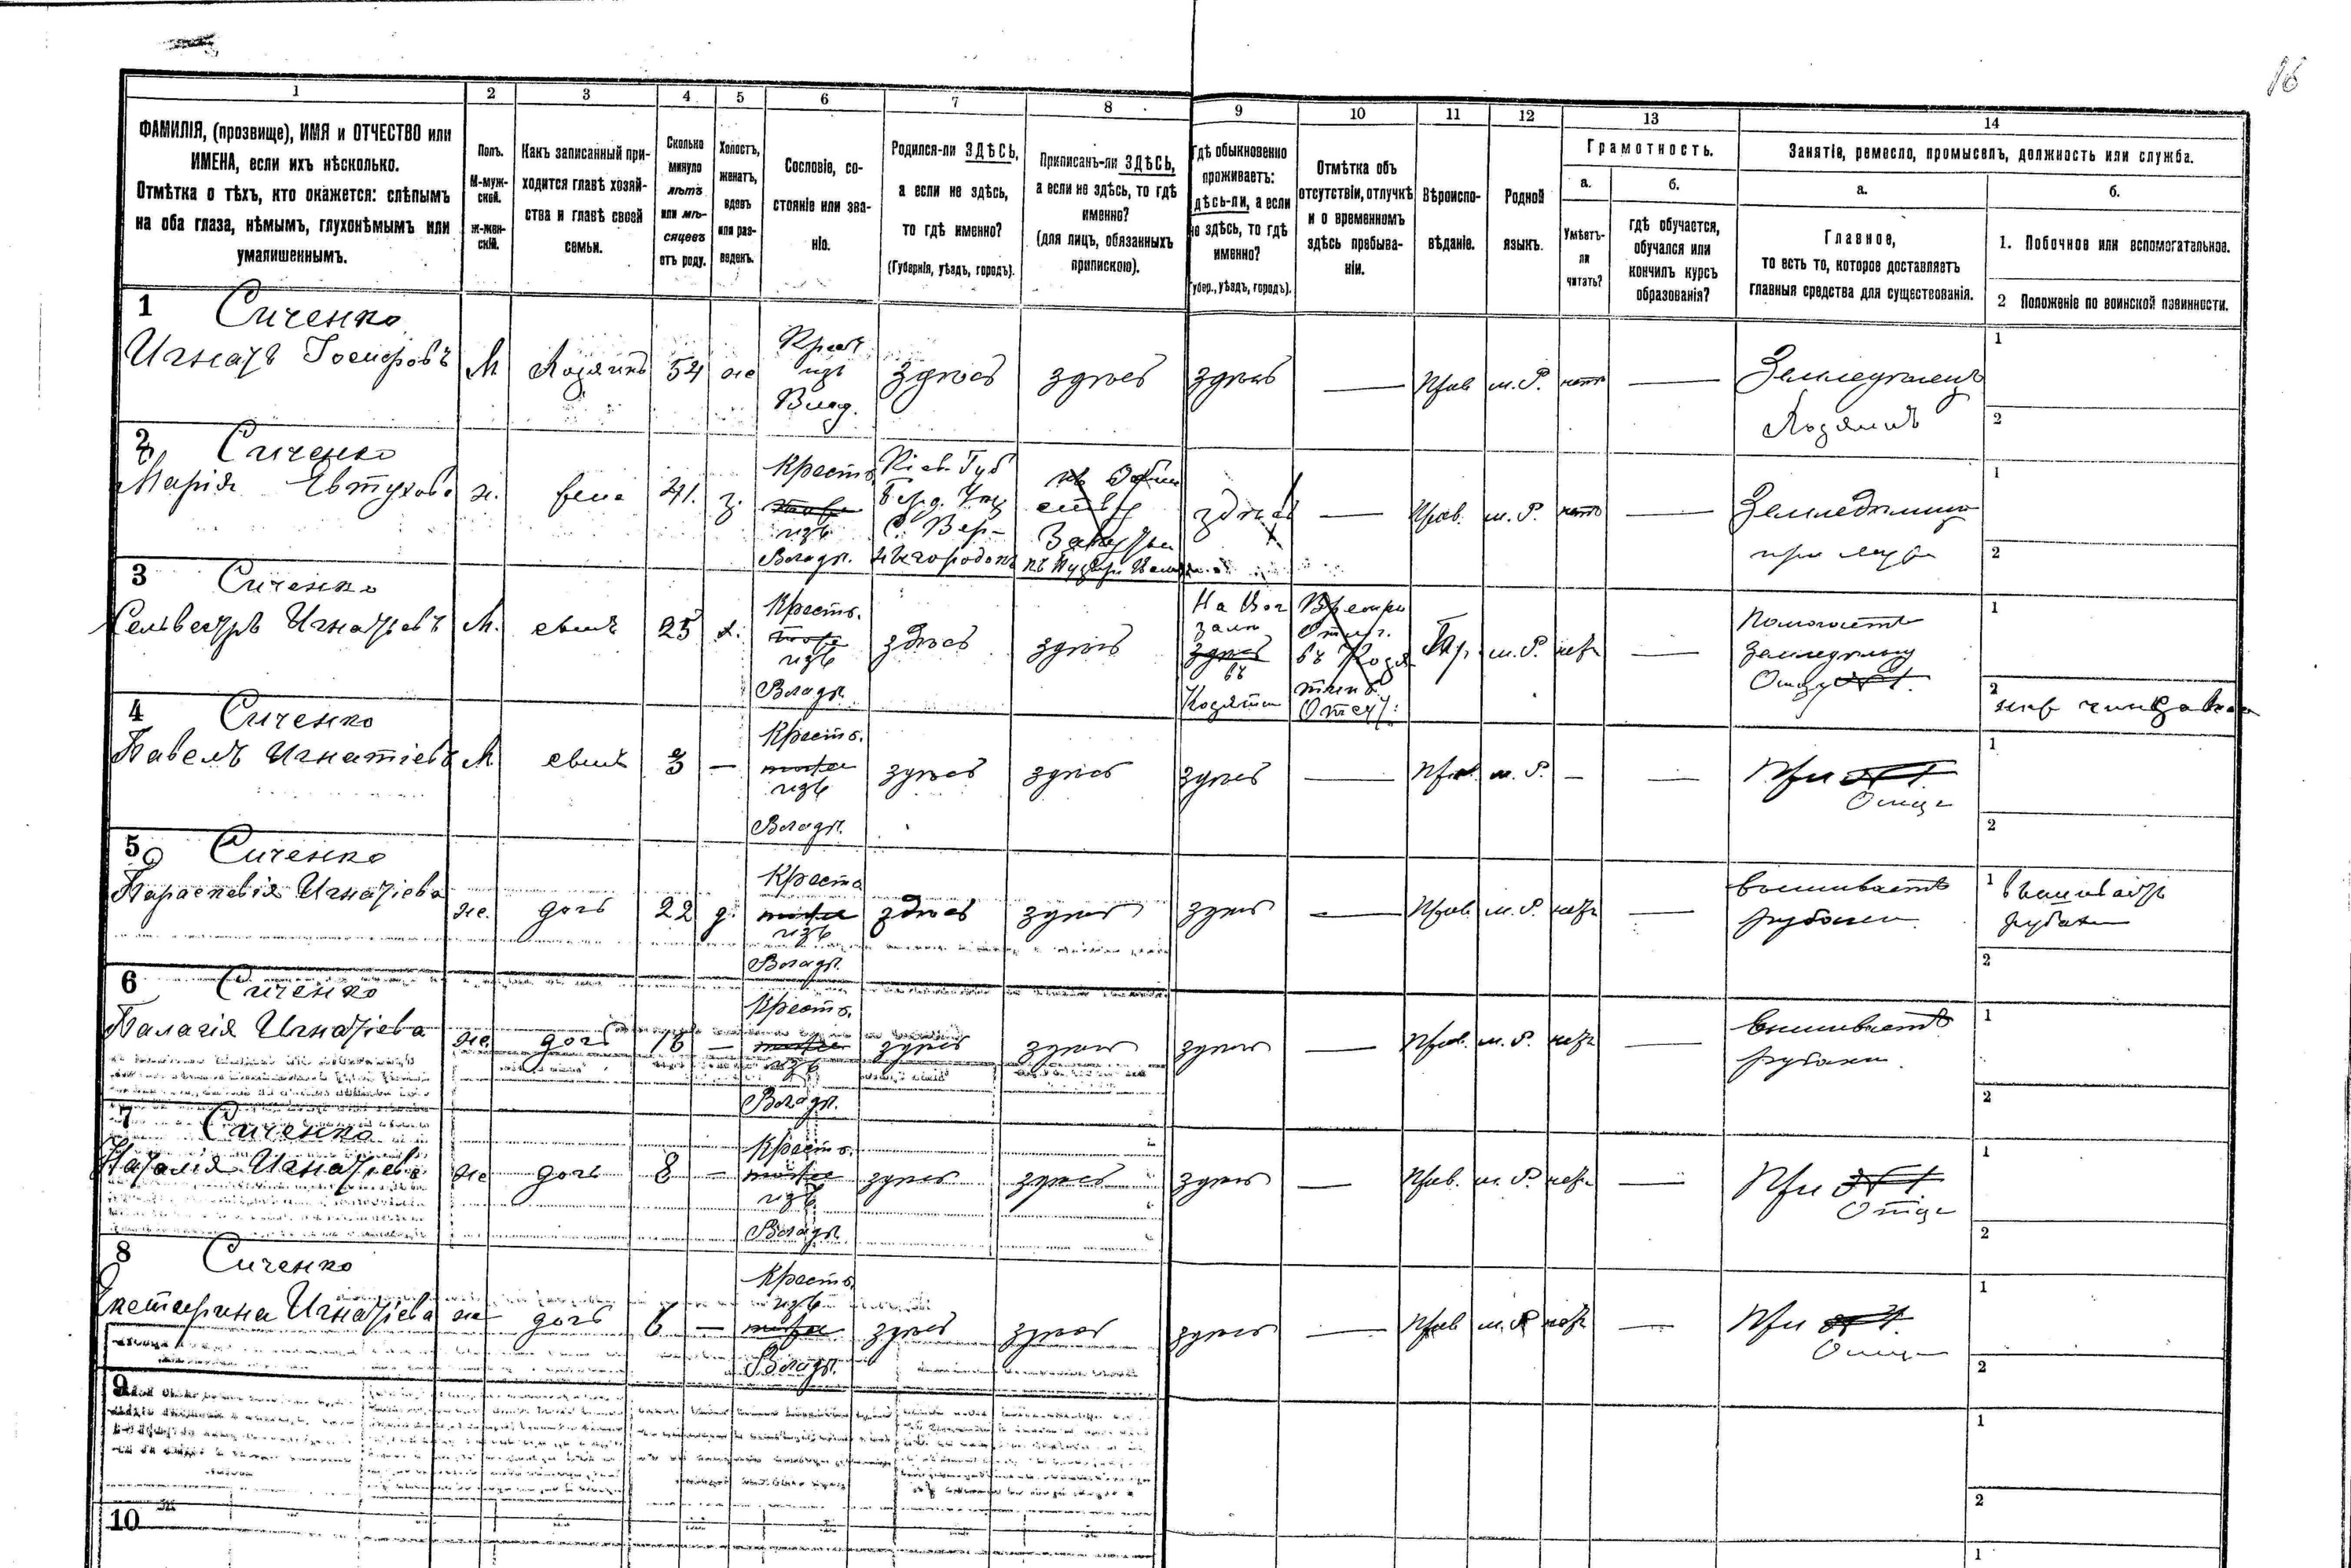 16
1 2 3 4 5 6 7 8 9 10 11 12 13 14
ФАМИЛІЯ, (прозвище), ИМЯ и ОТЧЕСТВО или
ИМЕНА, если ихъ нѣсколько.
Отмѣтка о тѣхъ, кто окажется: слѣпымъ
на оба глаза, нѣмымъ, глухонѣмымъ или
умалишеннымъ.
Полъ.
М-муж-
ской.
ж-жен-
скій.
Какъ записанный при-
ходится главѣ хозяй-
ства и главѣ своей
семьи.
Сколько
минуло
лѣтъ
или мѣ-
сяцевъ
отъ роду.
Холостъ,
женатъ,
вдовъ
или раз-
веденъ.
Сословіе, со-
стояніе или зва-
ніе.
Родился-ли ЗДѢСЬ,
а если не здѣсь,
то гдѣ именно?
(Губернія, уѣздъ, городъ).
Приписанъ-ли ЗДѢСЬ,
а если не здѣсь, то гдѣ
именно?
(для лицъ, обязанныхъ
припискою).
Гдѣ обыкновенно
проживаетъ:
здѣсь-ли, а если
не здѣсь, то гдѣ
именно?
Губер., уѣздъ, городъ).
Отмѣтка объ
отсутствіи, отлучкѣ
и о временномъ
здѣсь пребыва-
ніи.
Вѣроиспо-
вѣданіе.
Родной
языкъ.
Грамотность.
а.
Умѣетъ-
ли
читать?
б.
гдѣ обучается,
обучался или
кончилъ курсъ
образованія?
Занятіе, ремесло, промыселъ, должность или служба.
а.
Главное,
то есть то, которое доставляетъ
главныя средства для существованія.
б.
1. Побочное или вспомогательное.
2 Положеніе по воинской повинности.
1 Сиченко
Игнатъ Іосифовъ
М Хозяинъ 54 же
Крест
изъ
Влад.
здѣсь здѣсь здѣсь — Прав м. Р. нетъ —
Земледѣлецъ
Хозяинъ
1
2
2 Сиченко
Марія Евтухова
ж. жена 41. з.
Крестъ.
изъ
Владѣ.
Кіев. Губ
Берд. Уѣз
С. Вер-
ныгородокъ
здѣсь — Прав. м. Р. нетъ —
при мужѣ
1
2
3 Сиченко
Сельвестръ Игнатіевъ
М. сынъ 25 х.
Крестъ.
изъ
Владѣ.
здѣсь здѣсь
На Вок
залѣ
здѣсь
въ
Пр. м. Р. нетъ —
Помогаетъ
Отцу
1
2
4 Сиченко
Павелъ Игнатіевъ
М сынъ 3 —
Крестъ.
изъ
Владѣ.
здѣсь здѣсь здѣсь — Прав. м. Р. — —
При
Отце
1
2
5 Сиченко
Параскевія Игнатіева
же. дочь 22 д.
Крестъ
изъ
Владѣ.
здѣсь здѣсь здѣсь — Прав м. Р. нетъ —
вышиваетъ
рубахи
1 вышиваетъ
рубахи
2
6 Сиченко
Палагія Игнатіева
же дочь 16 —
Крестъ.
изъ
Владѣ.
здѣсь здѣсь здѣсь — Прав. м. Р. нетъ —
Вышиваетъ
рубахи
1
2
7 Сиченко
Наталія Игнатіева
же дочь 8 —
Крестъ.
изъ
Владѣ.
здѣсь здѣсь здѣсь — Прав. м. Р. нетъ —
При
Отце
1
2
8 Сиченко
Екатерина Игнатіева
же дочь 6 —
Крестъ
изъ
Владѣ.
здѣсь здѣсь здѣсь — Прав м. Р нетъ —
При
Отце
1
2
9
1
2
10
1